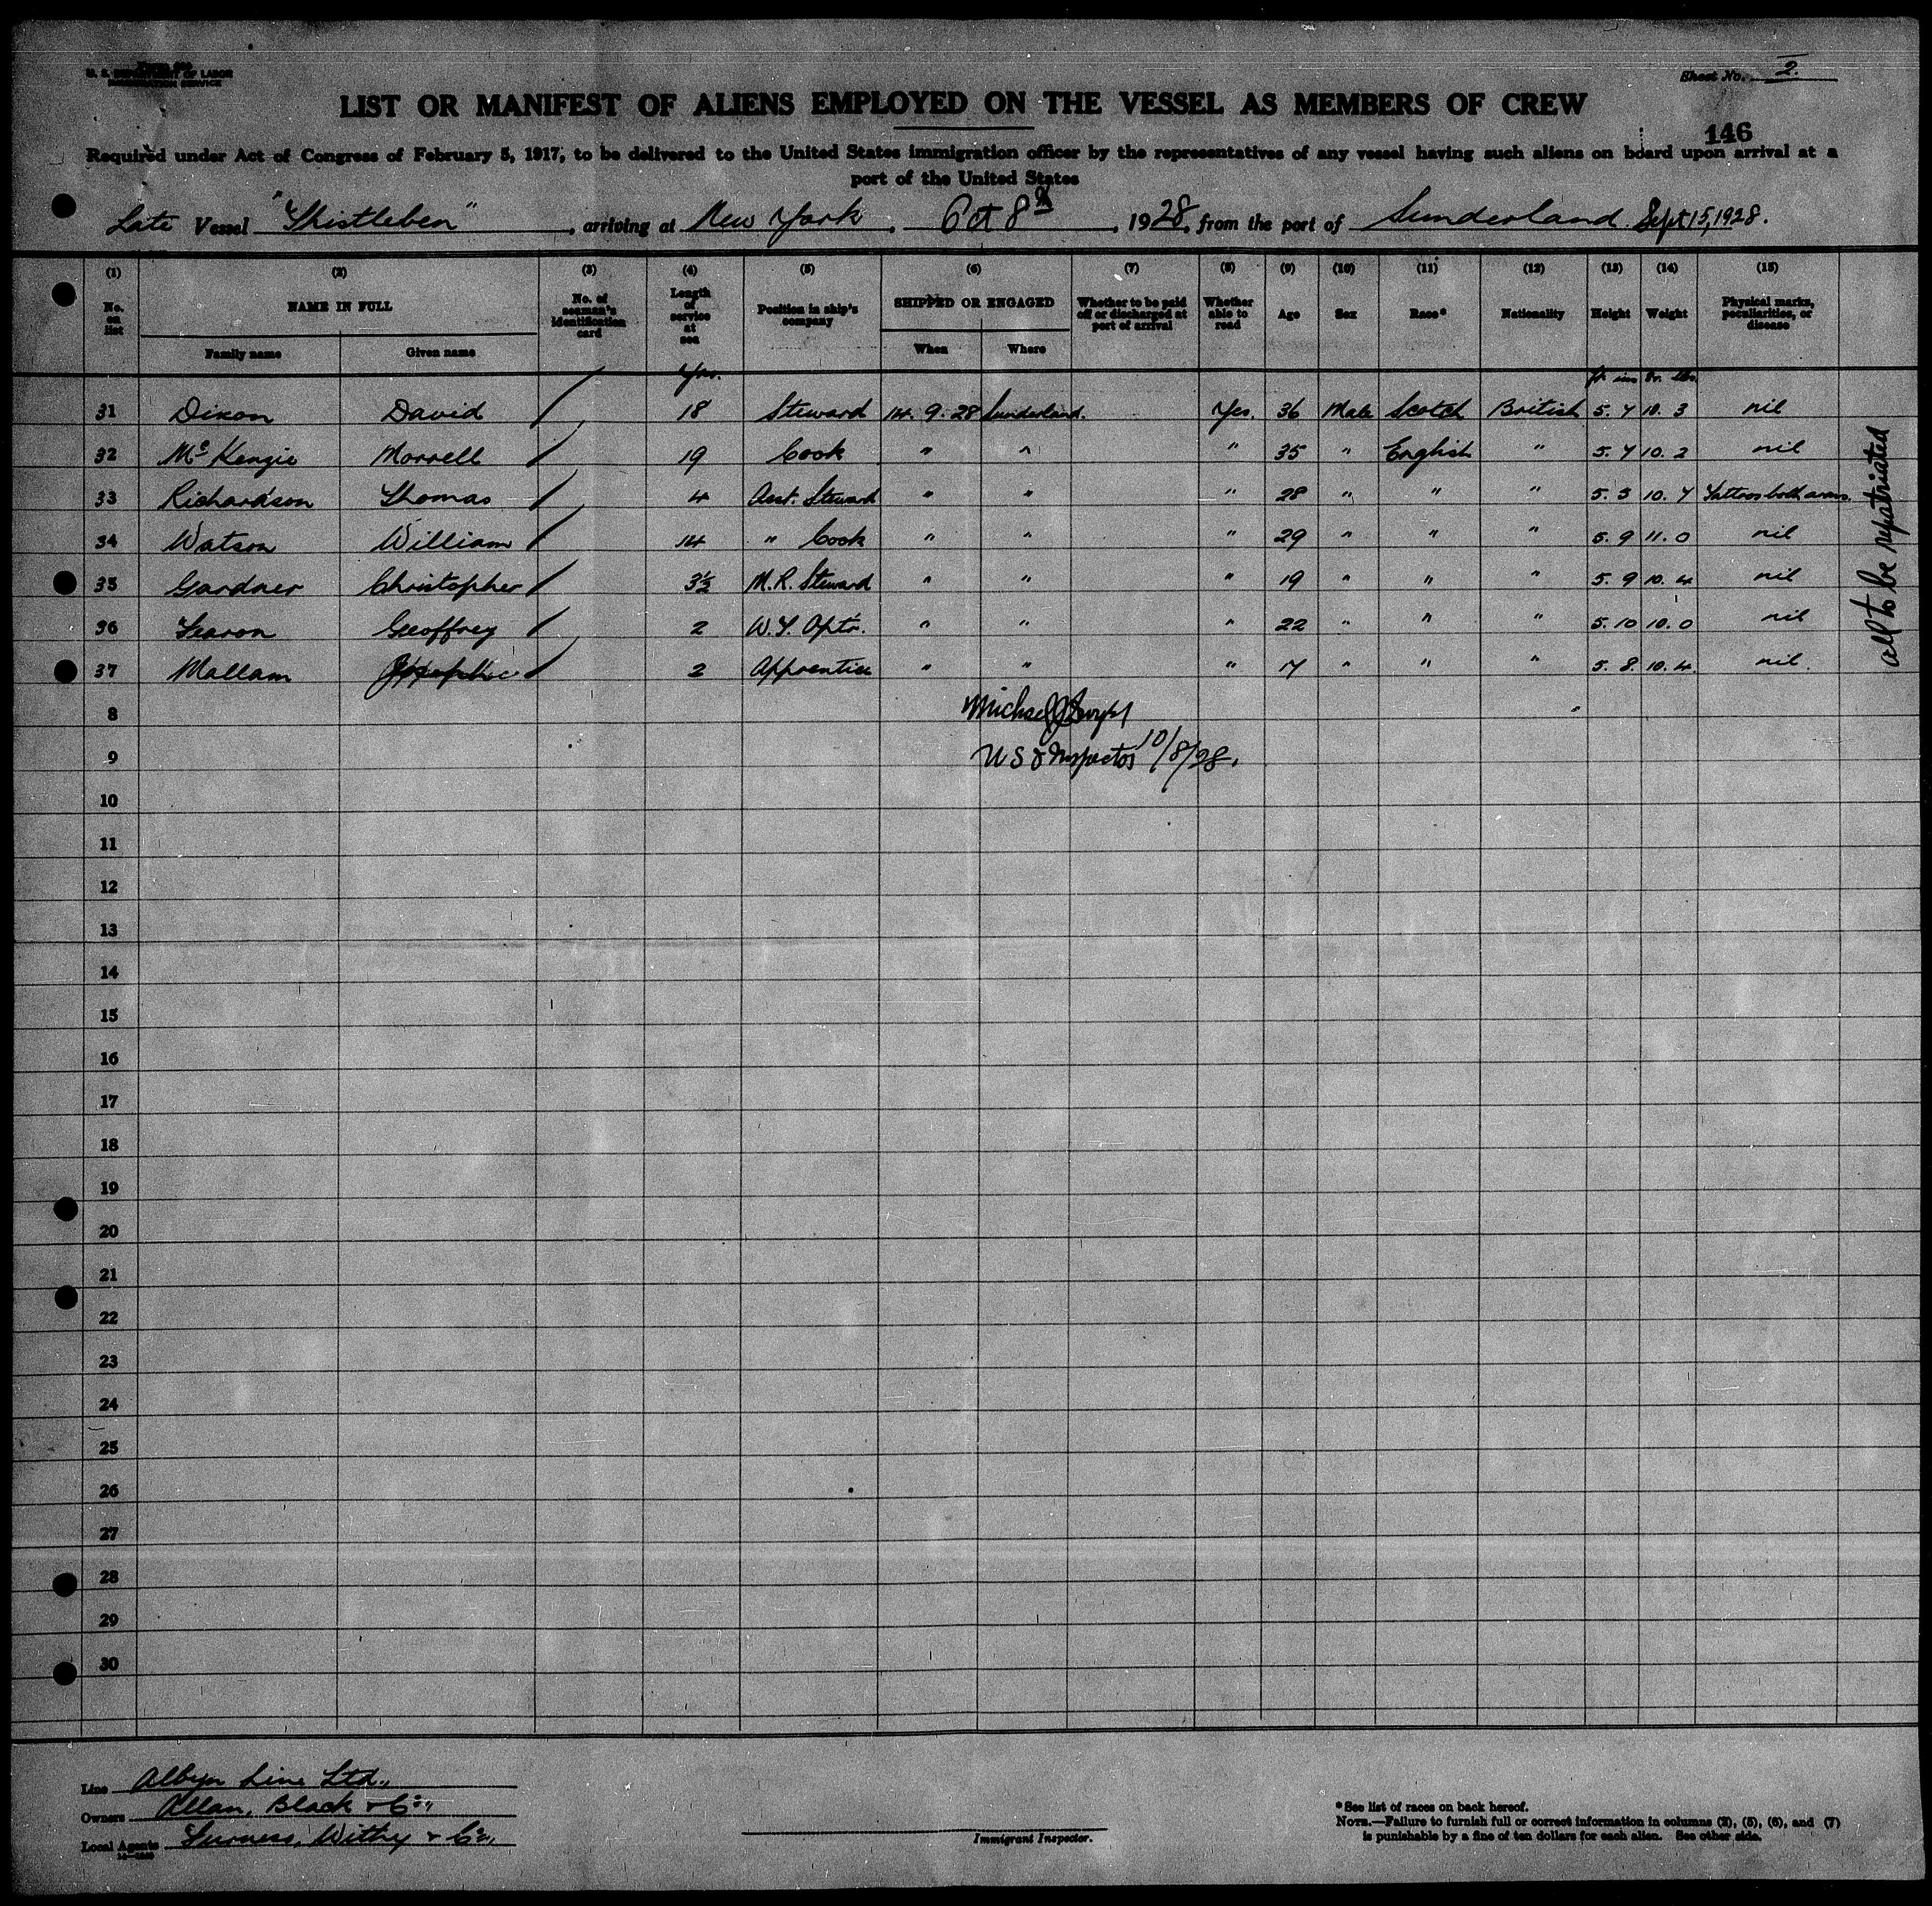 U. S. DEPARTMENT OF LABOR
IMMIGRATION SERVICE
Sheet No. 2.
LIST OR MANIFEST OF ALIENS EMPLOYED ON THE VESSEL AS MEMBERS OF CREW
146
Required under Act of Congress of February 5, 1917, to be delivered to the United States immigration officer by the representatives of any vessel having such aliens on board upon arrival at a
port of the United States
Late Vessel "Thistleben", arriving at New York, Oct 8th, 1928, from the port of Sunderland. Sept 15, 1928.
(1) (2) (3) (4) (5) (6) (7) (8) (9) (10) (11) (12) (13) (14) (15)
No. on list NAME IN FULL Family name Given name No. of seaman's identification card Length of service at sea Position in ship's company SHIPPED OR ENGAGED When Where Whether to be paid off or discharged at port of arrival Whether able to read Age Sex Race* Nationality Height Weight Physical marks, peculiarities, or disease
Yrs. ft. ins St. lbs.
31 Dixon David / 18 Steward 14. 9. 28 Sunderland. Yes. 36 Male Scotch British 5. 7 10. 3 nil
32 McKenzie Morrell / 19 Cook " " " 35 " English " 5. 7 10. 2 nil
33 Richardson Thomas / 4 Asst. Steward " " " 28 " " " 5. 5 10. 7 Tattoos both arms.
34 Watson William / 14 " Cook " " " 29 " " " 5. 9 11. 0 nil
35 Gardner Christopher / 3½ M.R. Steward " " " 19 " " " 5. 9 10. 4 nil
36 Fearon Geoffrey / 2 W.T. Optr. " " " 22 " " " 5. 10 10. 0 nil
37 Mallam / 2 Apprentice " " " 17 " " " 5. 8. 10. 4. nil.
all to be repatriated
8 Michael J
9 U S I Inspector 10/8/28.
10
11
12
13
14
15
16
17
18
19
20
21
22
23
24
25
26
27
28
29
30
Line Albyn Line Ltd.,
Owners Allan, Black & Co.,
Local Agents Furness, Withy & Co.,
Immigrant Inspector.
*See list of races on back hereof.
NOTE.—Failure to furnish full or correct information in columns (2), (5), (6), and (7)
is punishable by a fine of ten dollars for each alien. See other side.